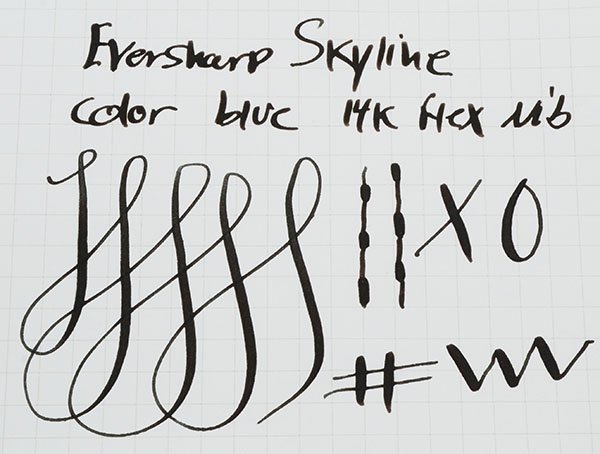 Eversharp Skyline
color blue 14K flex nib
X O
#